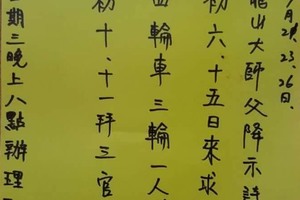 23.26日
山大師父降示詩
初六、十五日來求
輪車三輪一人
初十、十一拜三官
期三晚上八點辦理